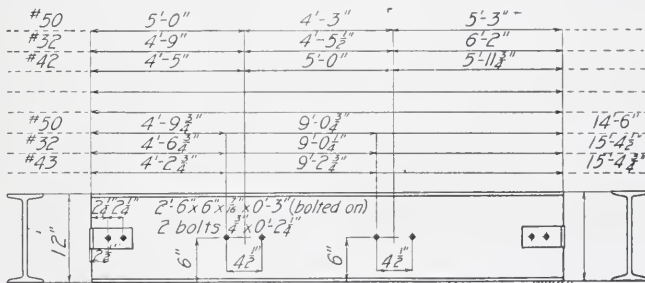 #50 5'-0" 4'-3" 5'-3"
#32 4'-9" 4'-5½" 6'-2"
#42 4'-5" 5'-0" 5'-11¾"
#50 4'-9¾" 9'-0¾" 14'-6"
#32 4'-6¾" 9'-0¼" 15'-4½"
#43 4'-2¾" 9'-2¾" 15'-4¾"
2¼" 2¼" 2'-6"x6"x 7/16 x0'-3"(bolted on)
2 bolts x0'-2¼"
12"
6" 4½" 6" 4½"